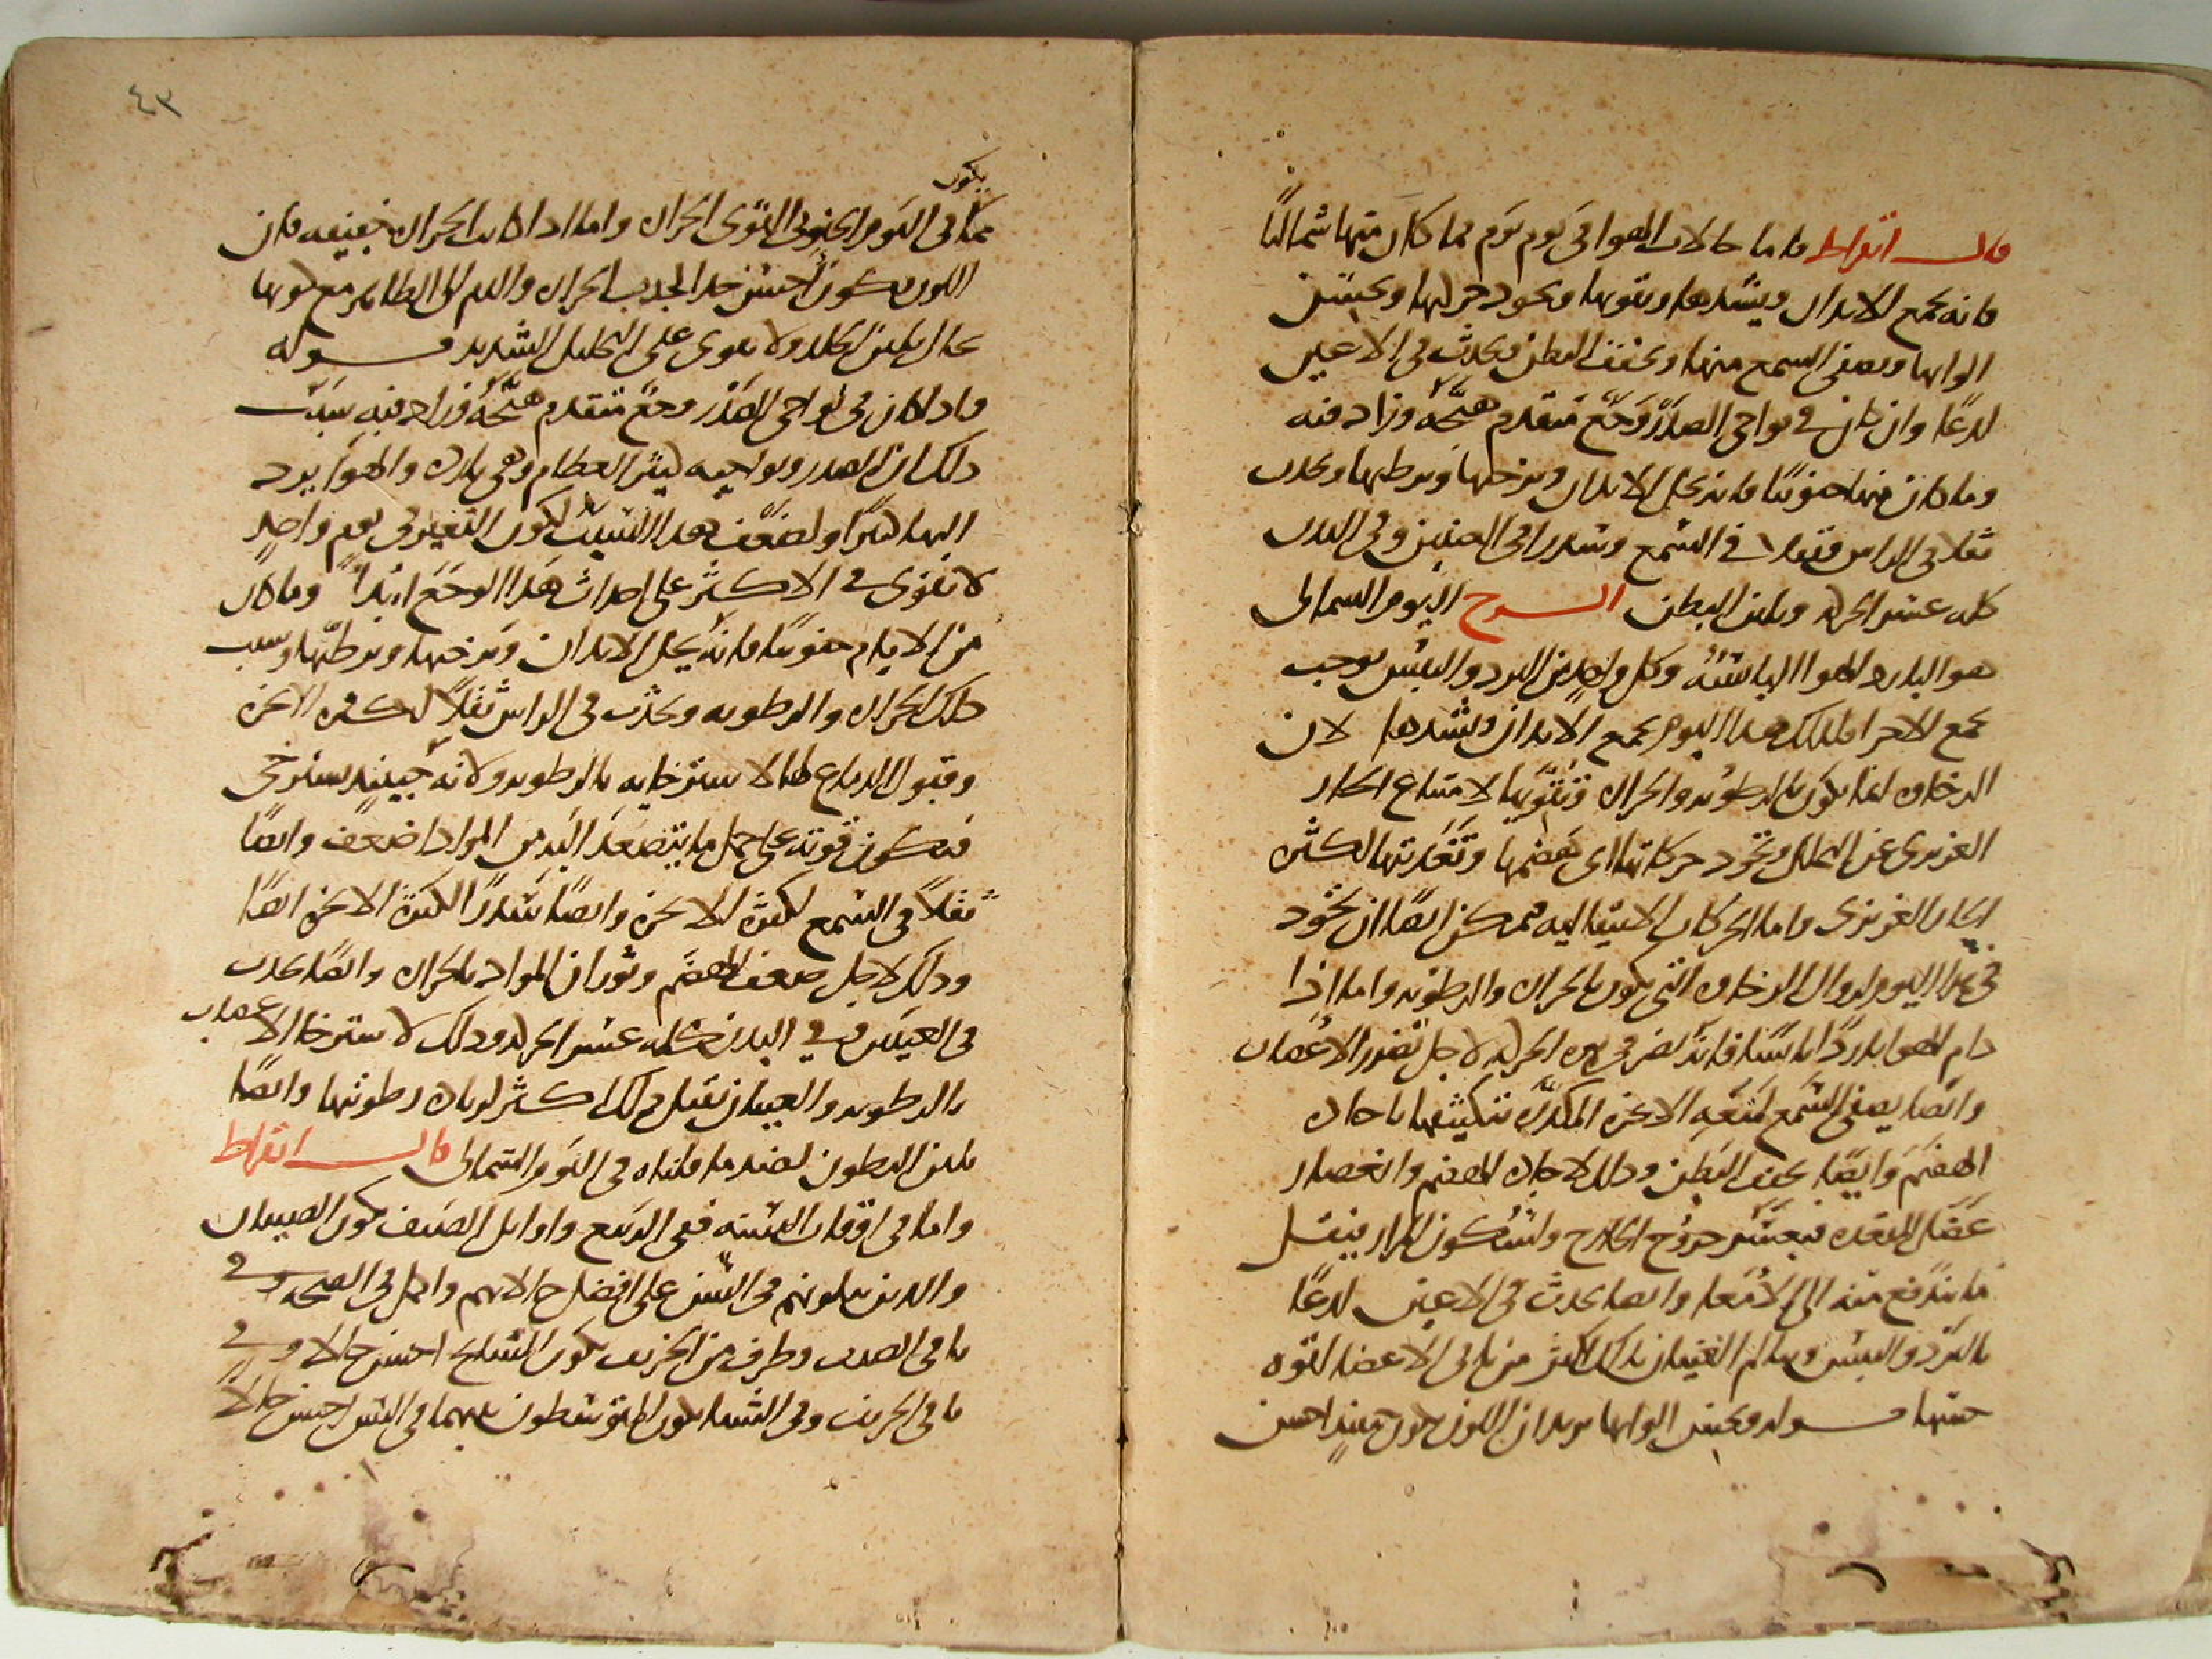 قال ابقراط فاما حالات الهوا في يوم يوم فما كان منها شماليا
فانه يجمع الابدان ويشدها ويقويها ويجود حركتها ويحسن
الوانها ويصفي السمع منها ويجفف البطن ويحدث في الاعين
لذعا وان كان في نواحي الصدر وجع متقدم هيجه وزاد فيه
وما كان منها جنوبيا فانه يحل الابدان ويرخيها ويرطبها ويحدث
ثقلا في الراس وثقلا في السمع وسدرا في العينين وفي البدن
كله عسر الحركه ويلين البطن الشرح اليوم الشمالي
هو البارد الهوا اليابسه وكل واحد من البرد واليبس يوجب
جمع الاجزا فلذلك هذا اليوم يجمع الابدان ويشدها لان
الرخاوه انما تكون بالرطوبه والحراره وتقويها لامتناع الحار
الغريزي عن التحلل وتجود حركاتها اي نفضها وتغذيتها لكثره
الحار الغريزي واما الحركات الاختياريه فممكن ايضا ان تجود
في هذا اليوم لزوال الرخاوه التي تكون بالحراره والرطوبه واما اذا
دام الهوا باردا يابسا فانه يضر في هذه الحركه لاجل تضرر الاعصاب
وايضا يصفي السمع لمنعه الابخره المكدره بتكثيفها باجاده
الهضم وايضا يجفف البطن وذلك لاجاده الهضم وانعصار
عضل المقعده فيعسر خروج الخارج ولسكون المرار فيقل
ما يندفع منه الى الامعا وايضا يحدث في الاعين لذعا
بالبرد واليبس وتالم العينان بذلك اكثر من باقي الاعضا لقوه
حسها قوله ويحسن الوانها يريد ان اللون يكون حينيذ احسن
يكون
مما في اليوم الجنوبي القوي الحراره واما اذا كانت الحراره ضعيفه فان
اللون يكون احسن جدا لجذب الحراره والدم الى الظاهر مع كونها
بحال يلين الجلد ولا يقوى على التحليل الشديد قوله
واذا كان في نواحي الصدر وجع متقدم هيجه وزاد فيه سبب
ذلك ان الصدر ونواحيه كثير العظام وهي بارده والهوا يرد
اليها كثيرا ولضعف هذا السبب لكون التغير في يوم واحد
لا يقوى في الاكثر على احداث هذا الوجع ابتدا وما كان
من الايام جنوبيا فانه يحل الابدان ويرخيها ويرطبها وسبب
ذلك الحراره والرطوبه ويحدث في الراس ثقلا لكثره الابخره
وقبول الدماغ لها لاسترخايه بالرطوبه ولانه حينيذ يسترخي
فتكون قوته على حمل ما يتصعد اليه من المواد اضعف وايضا
ثقلا في السمع لكثره الابخره وايضا سدرا لكثره الابخره ايضا
وذلك لاجل ضعف الهضم وثوران المواد بالحراره وايضا يحدث
في العينين وفي البدن كله عسر الحركه وذلك لاسترخا الاعصاب
بالرطوبه والعينان تقبل ذلك اكثر لزياده رطوبتها وايضا
يلين البطون لضد ما قلناه في اليوم الشمالي قال ابقراط
واما في اوقات السنه ففي الربيع واوايل الصيف يكون الصبيان
والذين يتلونهم في السن على افضل حالاتهم واكمل في الصحه وفي
باقي الصيف وطرف من الخريف يكون المشايخ احسن حالا وفي
باقي الخريف وفي الشتا يكون المتوسطون بينهما في السن احسن حالا
٤٣